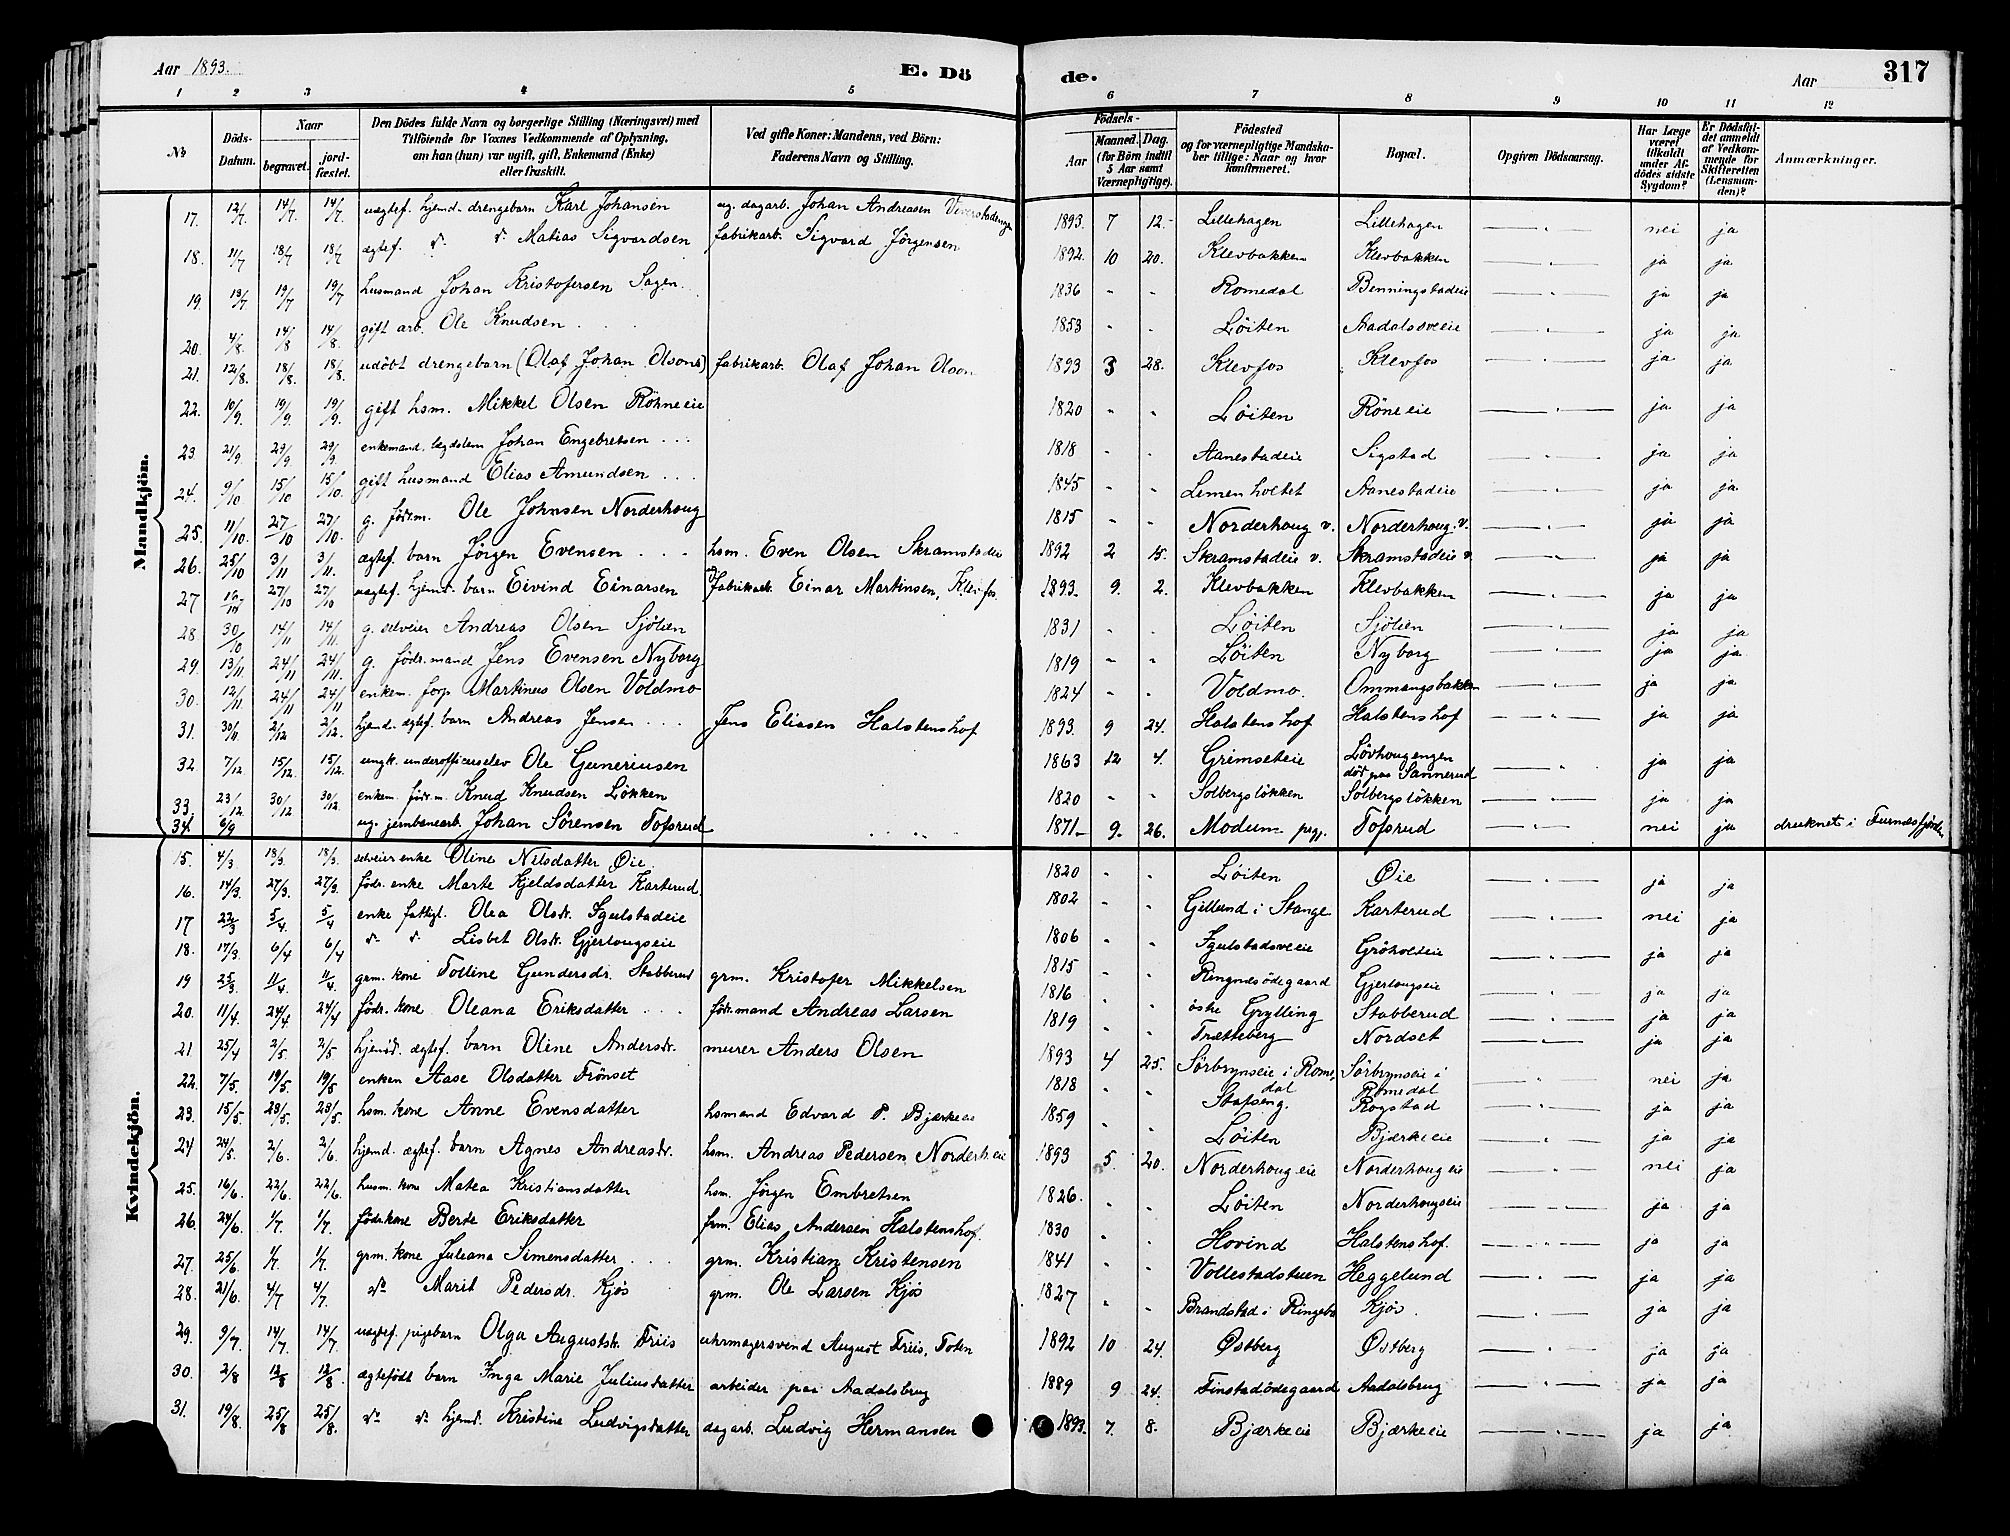 Aar 1893. E. Dö de. Aar 317
1 2 3 4 5 6 7 8 9 10 11 12
No Döds-Datum. Naar begravet. jord-fæstet. Den Dödes fulde Navn og borgerlige Stilling (Næringsvei) med Tilföiende for Voxnes Vedkommende af Oplysning, om han (hun) var ugift, gift, Enkemand (Enke) eller fraskilt. Ved gifte Koner: Mandens, ved Börn: Faderens Navn og Stilling. Födsels- Aar Maaned. Dag. (for Börn indtil 5 Aar samt Værnepligtige). Födested og for værnepligtige Mandskaber tillige: Naar og hvor konfirmeret. Bopæl. Opgiven Dödsaarsag. Har Læge været tilkaldt under Afdödes sidste Sygdom? Er Dödsfaldet anmeldt af Vedkommende for Skifteretten (Lensmanden)? Anmærkninger.
Mandkjön.
17. 12/7 14/7. 14/7. uægtef. hjemd. drengebarn Karl Johansen ug. dagarb. Johan Andreasen 1893. 7 12. Lillehagen Lillehagen — " — nei ja
18. 11/7 18/7 18/7. ægtef. d. d. Matias Sigvardsen fabrikarb. Sigvard Jörgensen 1892. 10 20. Klevbakken Klevbakken — " — ja ja
19. 13/7 19/7 19/7 husmand Johan Kristofersen Sagen 1836 " " Romedal Benningstadeie — " — ja ja
20. 4/8. 14/8 14/8. gift arb. Ole Knudsen 1853 " " Löiten Aadalsveeie — " — ja ja
21. 12/8. 18/8. 18/8. udöbt drengebarn (Olaf Johan Olsons) fabrikarb. Olaf Johan Olson 1893 3 28. Klevfos Klevfos — " — ja ja
22. 10/9 19/9. 19/9. gift hsm. Mikkel Olsen Röhneeie 1820 " " Löiten Röneeie — " — ja ja
23. 21/9. 29/9. 29/9. enkemand, lægdslem Johan Engebretsen 1818 " " Aanestadeie Sigstad — " — ja ja
24. 9/10 15/10 15/10. gift husmand Elias Amundsen 1845 " " Lemenholtet Aanestadeie — " — ja ja
25. 11/10. 27/10 27/10. g. födr.m. Ole Johnsen Norderhoug 1815 " " Norderhoug v. Norderhoug. v. — " — ja ja
26. 25/10 3/11 3/11. ægtef. barn Jörgen Evensen hsm. Even Olsen Skramstadeie 1892 2 15. Skramstadeie v. Skramstadeie v. — " — ja ja
27 27/10 27/10 uægtef. hjemd. barn Eivind Einarsen fabrikarb. Einar Martinsen, Klevfos. 1893. 9. 2. Klevbakken Klevbakken — " — ja ja
28 30/10 14/11 14/11. g. selveier Andreas Olsen Sjölien 1831 " " Löiten Sjölien — " — ja ja
29. 13/11. 24/11 24/11. g. födr.mand Jens Evensen Nyborg 1819 " " Löiten Nyborg — " — ja ja
30. 12/11 24/11 24/11 enkem. forp. Martinus Olsen Voldmo 1824 " " Voldmo. Ommangsbakken — " — ja ja
31. 30/11. 2/12 2/12. hjemd. ægtef. barn Andreas Jensen Jens Eliasen Halstenshof 1893. 9 24. Halstenshof Halstenshof — " — ja ja
32 7/12 15/12. 15/12. ungk. underofficerselev Ole Guneriusen 1863 12 4. Grimseteie Lövhougengen död paa Sannerud — " — ja ja
33. 23/12. 30/12 30/12. enkem. födr.m. Knud Knudsen Lökken 1820 " " Solbergslökken Solbergslökken — " — ja ja
34. 6/9 ug. jernbanearb. Johan Sörensen Tofsrud 1871 9. 26. Modum prgj. Tofsrud — " — nei ja druknet i Furnæsfjorden
Kvindekjön.
15. 4/3. 13/3. 13/3. selveier enke Oline Nilsdatter Øie 1820 " " Löiten Øie — " — ja ja
16. 14/3 27/3. 27/3. födr. enke Marte Kjeldsdatter Karterud 1802 " " Gillund i Stange Karterud — " — nei ja
17 22/3 5/4. 5/4 enke fattigl. Olea Olsdr. Igulstadeie 1806 " " Igulstadsveeie Gröholteie — " — ja ja
18. 17/3. 6/4 6/4 d. d. Lisbet Olsdr. Gjerlougseie 1815 " " Ringnæsödegaard Gjerlougseie — " — ja ja
19 25/3. 11/4 11/4. grm. kone Tolline Gundersdr. Stabberud grm. Kristofer Mikkelsen 1816 " " östre Grylling Stabberud — " — ja ja
20. 11/4. 24/4 24/4 födr. kone Oleana Eriksdatter födr.mand Andreas Larsen 1819 " " Trætteberg Nordset — " — ja ja
21 25/4 2/5 2/5 hjemdr. ægtef. barn Oline Andersdr. murer Anders Olsen 1893 4 25. Sörbrynseie i Romedal Sörbrynseie i Romedal — " — nei ja
22. 7/5. 19/5. 19/5 enken Aase Olsdatter Frönset 1818 " " Stafseng. Rogstad — " — ja ja
23. 15/5. 23/5. 23/5. hsm. kone Anne Evensdatter hsmand Edvard P. Bjerkeeie 1859 " " Löiten Bjærkeeie — " — ja ja
24 24/5. 2/6. 2/6. hjemd. ægtef. barn Agnes Andreasdr. hsm. Andreas Pedersen Norderh.eie 1893 5. 20. Norderhougeie Norderhougeie — " — nei ja
25. 16/6. 22/6. 22/6. husm. kone Matea Kristiansdatter hsm. Jörgen Embretsen 1826. " " Löiten Norderhougseie — " — ja ja
26. 24/6. 1/7 1/7. födr.kone Berte Eriksdatter frm. Elias Andersen Halstenshof. 1830 " " Hovind Halstenshof. — " — ja ja
27. 25/6. 1/7. 1/7. grm. kone Juliana Simensdatter grm. Kristian Kristensen 1841 " " Vollestadstuen Heggelund — " — ja ja
28. 21/6. 4/7 4/7. do Marit Pedersdr. Kjös grm. Ole Larsen Kjös 1827 " " Brandstad i Ringebo Kjös. — " — ja ja
29. 9/7. 14/7. 14/7. uægtef. pigebarn Olga Augustsdr. Friis uhrmagersvend August Friis, Toten 1892 10 24. Østberg Østberg — " — ja ja
30 2/8 12/8 12/8. ægtefödt barn Inga Marie Juliusdatter arbeider paa Aadalsbrug 1889 9 24. Finstadödegaard Aadalsbrug — " — ja ja
31. 19/8. 25/8 25/8. do do hjemd. Kristine Ludvigsdatter dagarb. Ludvig Hermansen 1893. 7. 8. Bjærkeeie Bjærkeeie — " — ja ja